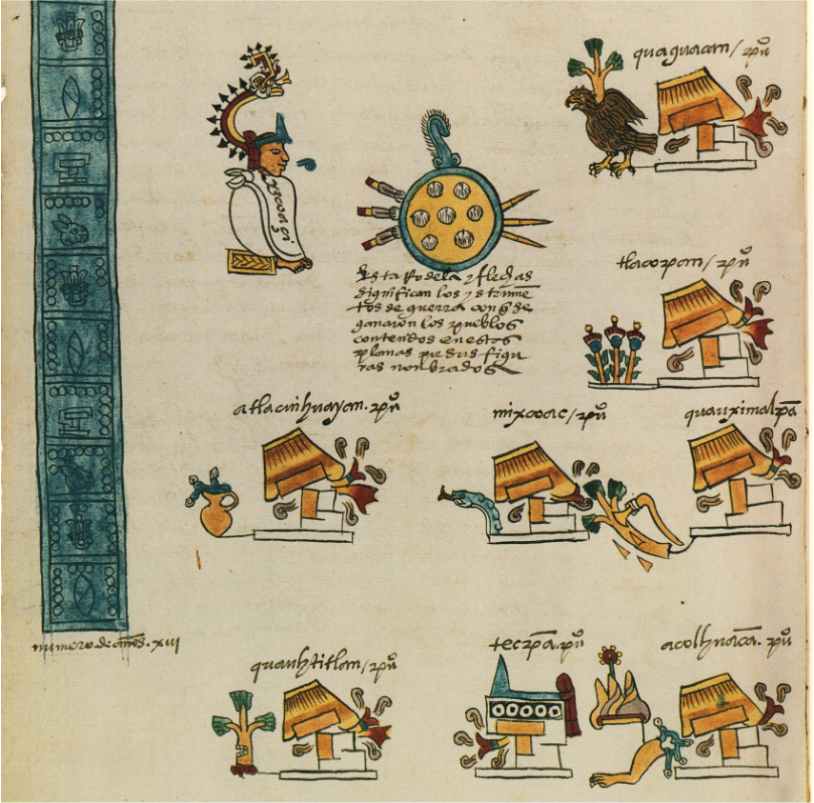 quaguacan / puº
yzcoaçi
esta Rodela y flechas
significan los ystrumē
tos de guerra con q̄ se
ganaron los pueblos
contenidos en estas
planas por sus figu
ras nonbrados
tlacopan / puº
atlacuihuayan. puº
mixcoac / puº
quauximalpā
numero de años. xiii
quauhtitlan / puº
tecpā. puº
acolhuacā. puº